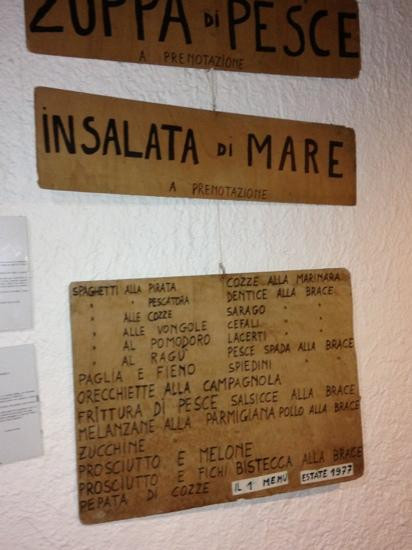 ZUPPA di PESCE
A PRENOTAZIONE
iNSALATA di MARE
A PRENOTAZIONE
SPAGHETTI ALLA PIRATA
" " PESCATORA
" ALLE COZZE
" ALLE VONGOLE
" AL POMODORO
" AL RAGÙ
PAGLIA E FIENO
ORECCHIETTE ALLA CAMPAGNOLA
FRITTURA DI PESCE
MELANZANE ALLA PARMIGIANA
ZUCCHINE
PROSCIUTTO E MELONE
PROSCIUTTO E FICHI
PEPATA DI COZZE
COZZE ALLA MARINARA
DENTICE ALLA BRACE
SARAGO " "
CEFALI " "
LACERTI " "
PESCE SPADA ALLA BRACE
SPIEDINI
SALSICCE ALLA BRACE
POLLO ALLA BRACE
BISTECCA ALLA BRACE
IL 1° MENÙ ESTATE 1977